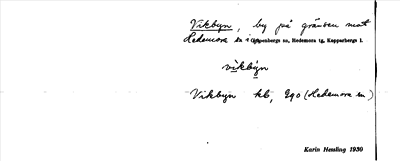 Vikbyn, by på gränsen mot
Hedemora sn i Garpenbergs sn, Hedemora tg, Kopparbergs l.
vìkbýn
Vikbyn hb, 290 (Hedemora sn)
Karin Hessling 1930